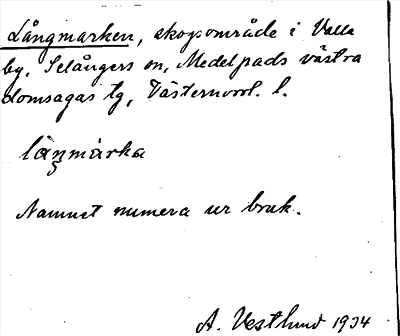 Långmarken, skogsområde i Valla
by, Selångers sn, Medelpads västra
domsagas tg, Västernorrl. l.
låŋmárka
Namnet numera ur bruk.
A. Westlund 1934